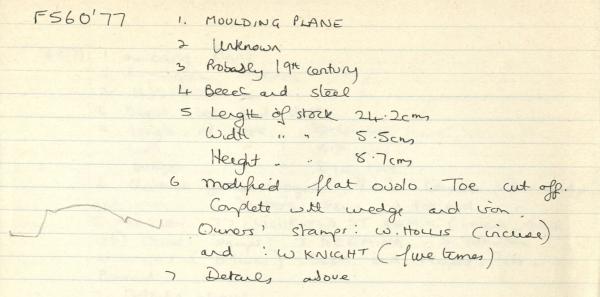 FS60'77
1. MOULDING PLANE
2 Unknown
3 Probably 19th century
4 Beech and steel
5 Length of stock 24.2cms
Width " " 5.5cms
Height " " 8.7cms
6 modified flat ovolo. Toe cut off.
Complete with wedge and iron.
Owners' stamps: W. HOLLIS (incuse)
and : W KNIGHT (five times)
7 Details above